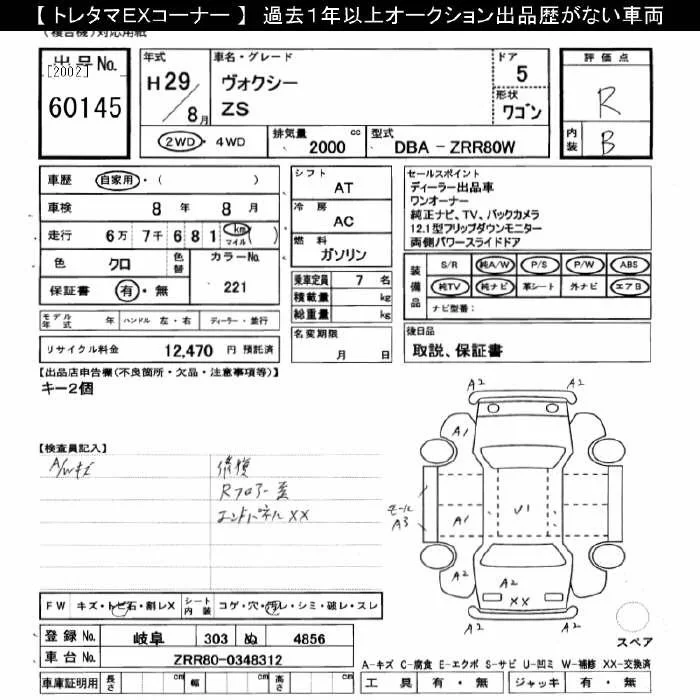 【 トレタマEXコーナー 】 過去1年以上オークション出品歴がない車両
(複合機)対応用紙
出品No.
[2002]
60145
年式
H29/8月
車名・グレード
ヴォクシー
ZS
ドア
5
形状
ワゴン
2WD・4WD
排気量
2000 cc
型式
DBA - ZRR80W
評価点
R
内装
B
車歴 自家用・( )
車検 8年 8月
走行 6万7千681 km マイル ( )
色 クロ 色替 カラーNo.
保証書 有・無 221
シフト
AT
冷房
AC
燃料
ガソリン
乗車定員 7 名
積載量 kg
総重量 kg
セールスポイント
ディーラー出品車
ワンオーナー
純正ナビ、TV、バックカメラ
12.1型フリップダウンモニター
両側パワースライドドア
装備品
S/R 純A/W P/S P/W ABS
純TV 純ナビ 革シート 外ナビ エアB
ナビ型番:
モデル年式 年 ハンドル 左・右 ディーラー・並行
リサイクル料金 12,470 円 預託済
名変期限
月 日
後日品
取説、保証書
【出品店申告欄(不良箇所・欠品・注意事項等)】
キー2個
【検査員記入】
A/Wキズ
修復
Rフロアー歪
エンドパネルXX
A2 A2
A1
A2
V1
モール
A3
A1
A2
A2
XX
A2 A2
スペア
FW キズ・トビ石・割レX シート内装 コゲ・穴・汚レ・シミ・破レ・スレ
登録No. 岐阜 303 ぬ 4856
車台No. ZRR80-0348312
A-キズ C-腐食 E-エクボ S-サビ U-凹ミ W-補修 XX-交換済
車庫証明用 長さ cm 幅 cm 高さ cm
工具 有・無 ジャッキ 有・無